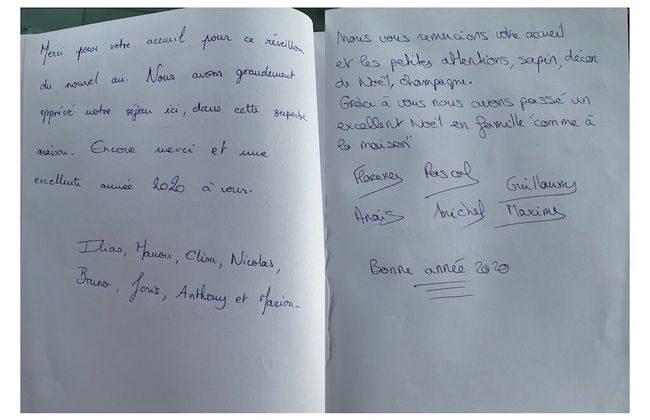 Merci pour votre accueil pour ce réveillon
du nouvel an. Nous avons grandement
apprécié notre séjour ici, dans cette superbe
maison. Encore merci et une
excellente année 2020 à vous.
Ilias, Manon, Elisa, Nicolas,
Bruno, Joris, Anthony et Marion.
Nous vous remercions votre accueil
et les petites attentions, sapin, décor
de Noël, champagne.
Grâce à vous nous avons passé un
excellent Noël en famille "comme à
la maison"
Florence Pascal Guillaume
Anaïs Michel Maxime
Bonne année 2020